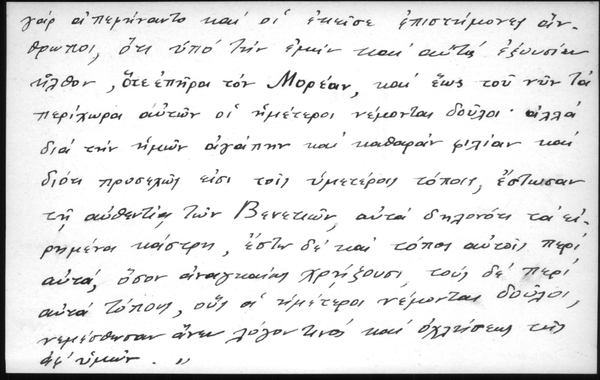 γάρ ἀπεμήναντο καί οἱ ἐκεῖσε ἐπιστήμονες ἄν-
θρωποι, ὅτι ὑπό τήν ἐμήν καί αὐτά ἐξουσίαν
ἦλθον, ὅτε ἐπῆρα τόν Μορέαν, καί ἕως τοῦ νῦν τά
περίχωρα αὐτῶν οἱ ἡμέτεροι νέμονται δοῦλοι· ἀλλά
διά τήν ἡμῶν ἀγάπην καί καθαράν φιλίαν καί
διότι προσεχῶς εἰσι τοῖς ὑμετέροις τόποις, ἔστωσαν
τῇ αὐθεντίᾳ τῶν Βενετιῶν, αὐτά δηλονότι τά εἰ-
ρημένα κάστρη, ἔστιν δέ καί τόπος αὐτοῖς περί
αὐτά, ὅσον ἀναγκαίως χρῄζουσι, τούς δέ περί
αὐτά τόπους, οὕς οἱ ἡμέτεροι νέμονται δοῦλοι,
νεμέσθωσαν ἄνευ λόγου τινός καί ὀχλήσεως τῆς
ἀφ' ὑμῶν. „